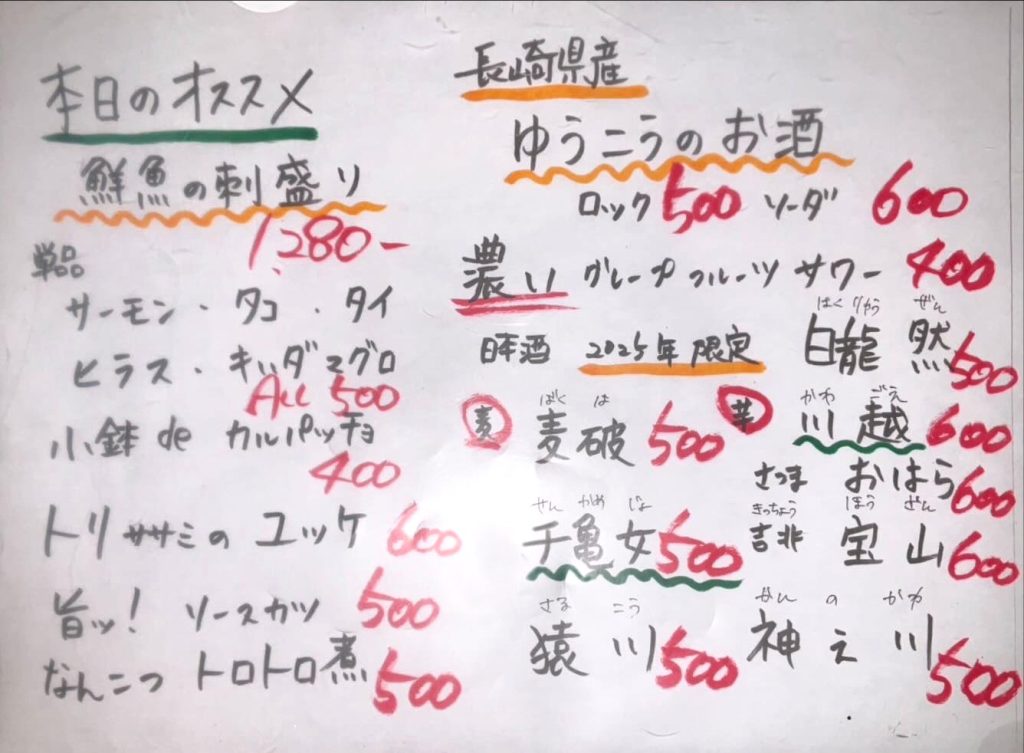 本日のオススメ
鮮魚の刺盛り
1,280-
単品
サーモン・タコ・タイ
ヒラス・キハダマグロ
All 500
小鉢 de カルパッチョ
400
トリササミのユッケ 600
旨ッ! ソースカツ 500
なんこつ トロトロ煮 500
長崎県産
ゆうこうのお酒
ロック 500 ソーダ 600
濃い グレープフルーツサワー 400
はくりゅう ぜん
日本酒 2025年限定 白龍 然 500
ばく は
麦 麦破 500
かわ ごえ
芋 川越 600
さつま おはら 600
せん かめ じょ
千亀女 500
きっちょう ほう ざん
吉兆 宝山 600
さる こう
猿川 500
かん の かわ
神の川 500